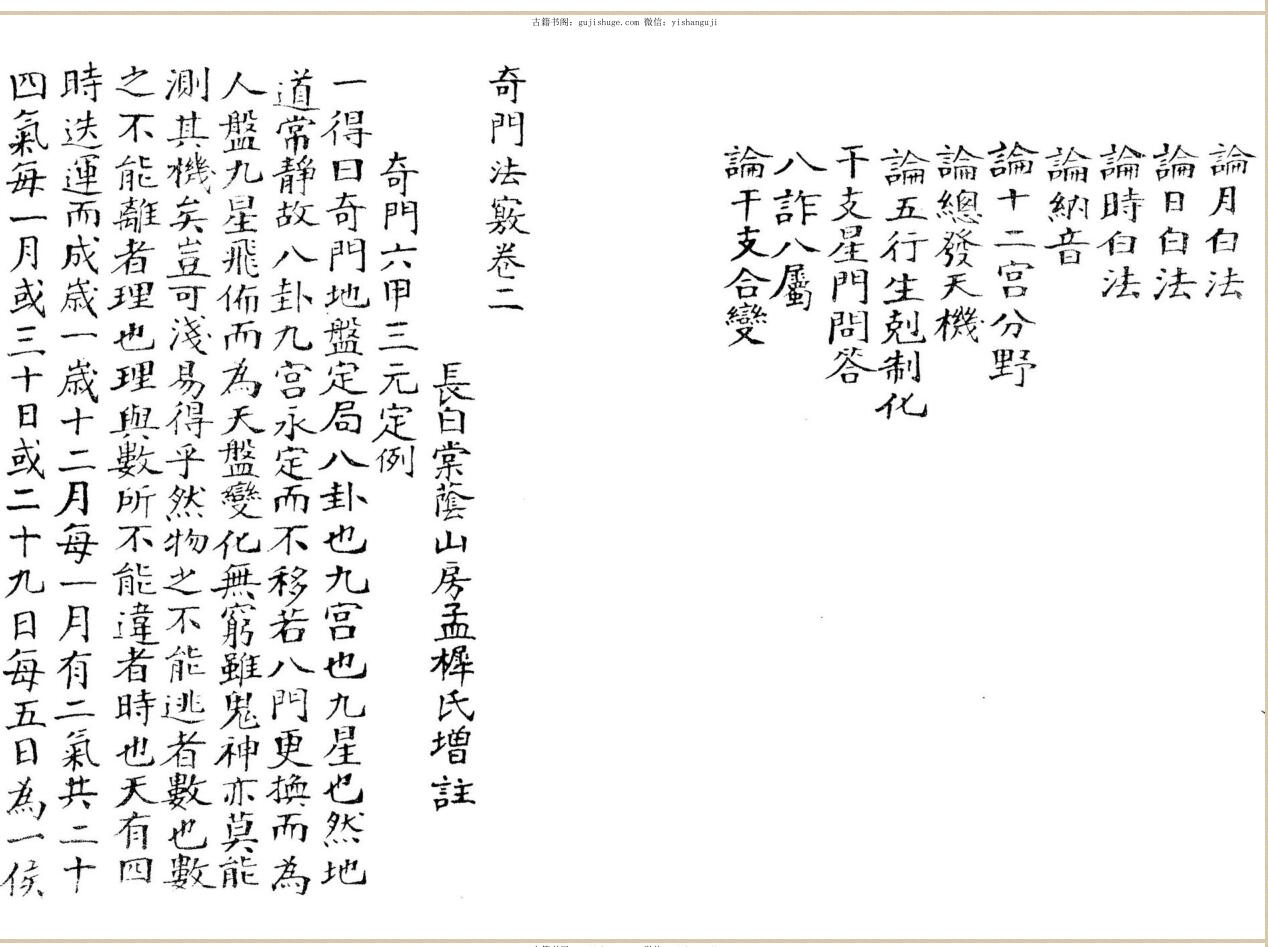 古籍书阁：gujishuge.com 微信：yishanguji
論月白法
論日白法
論時白法
論納音
論十二宫分野
論總發天機
論五行生剋制化
干支星門問答
八詐八屬
論干支合變
奇門法竅卷二
長白棠蔭山房孟樨氏增註
奇門六甲三元定例
一得曰奇門地盤定局八卦也九宫也九星也然地
道常靜故八卦九宫永定而不移若八門更換而為
人盤九星飛佈而為天盤變化無窮雖鬼神亦莫能
測其機矣豈可淺易得乎然物之不能逃者數也數
之不能離者理也理與數所不能違者時也天有四
時迭運而成歲一歲十二月每一月有二氣共二十
四氣每一月或三十日或二十九日每五日為一候